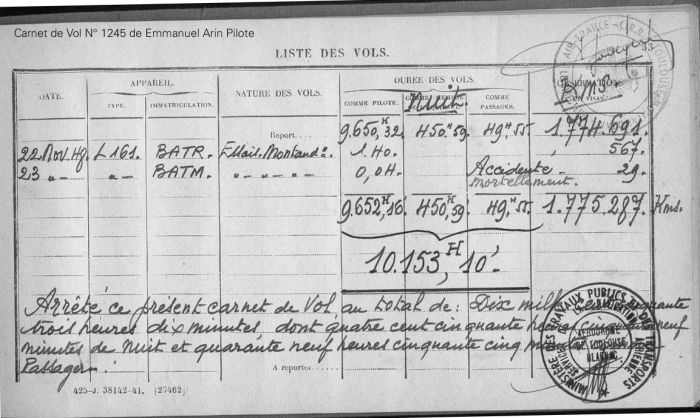 Carnet de Vol N° 1245 de Emmanuel Arin Pilote
LISTE DES VOLS.
DATE. APPAREIL. NATURE DES VOLS. DURÉE DES VOLS.
TYPE. IMMATRICULATION. COMME PILOTE. Nuit. COMME PASSAGER.
Report.... 9.650,32. 450,59. 49.H55. 1.774.691.
22 Nov. 49. L161. BATR. 1.40. 567.
23 -"- -"- BATM. -"- -"- -"- 0,04. Accidenté 29.
mortellement.
9.652H,16. 450H,59. 49.H55. 1.775.287. Kms.
10.153H,10'
Arrêté ce présent carnet de Vol, au total de: Dix mille cent cinquante
trois heures dix minutes dont quatre cent cinquante heures cinquante neuf
minutes de Nuit et quarante neuf heures cinquante cinq minutes
Passager.
A reporter...
425-J. 38142-41. (27462)
MINISTÈRE DES TRAVAUX PUBLICS ET DES TRANSPORTS
AÉRODROME DE TOULOUSE BLAGNAC